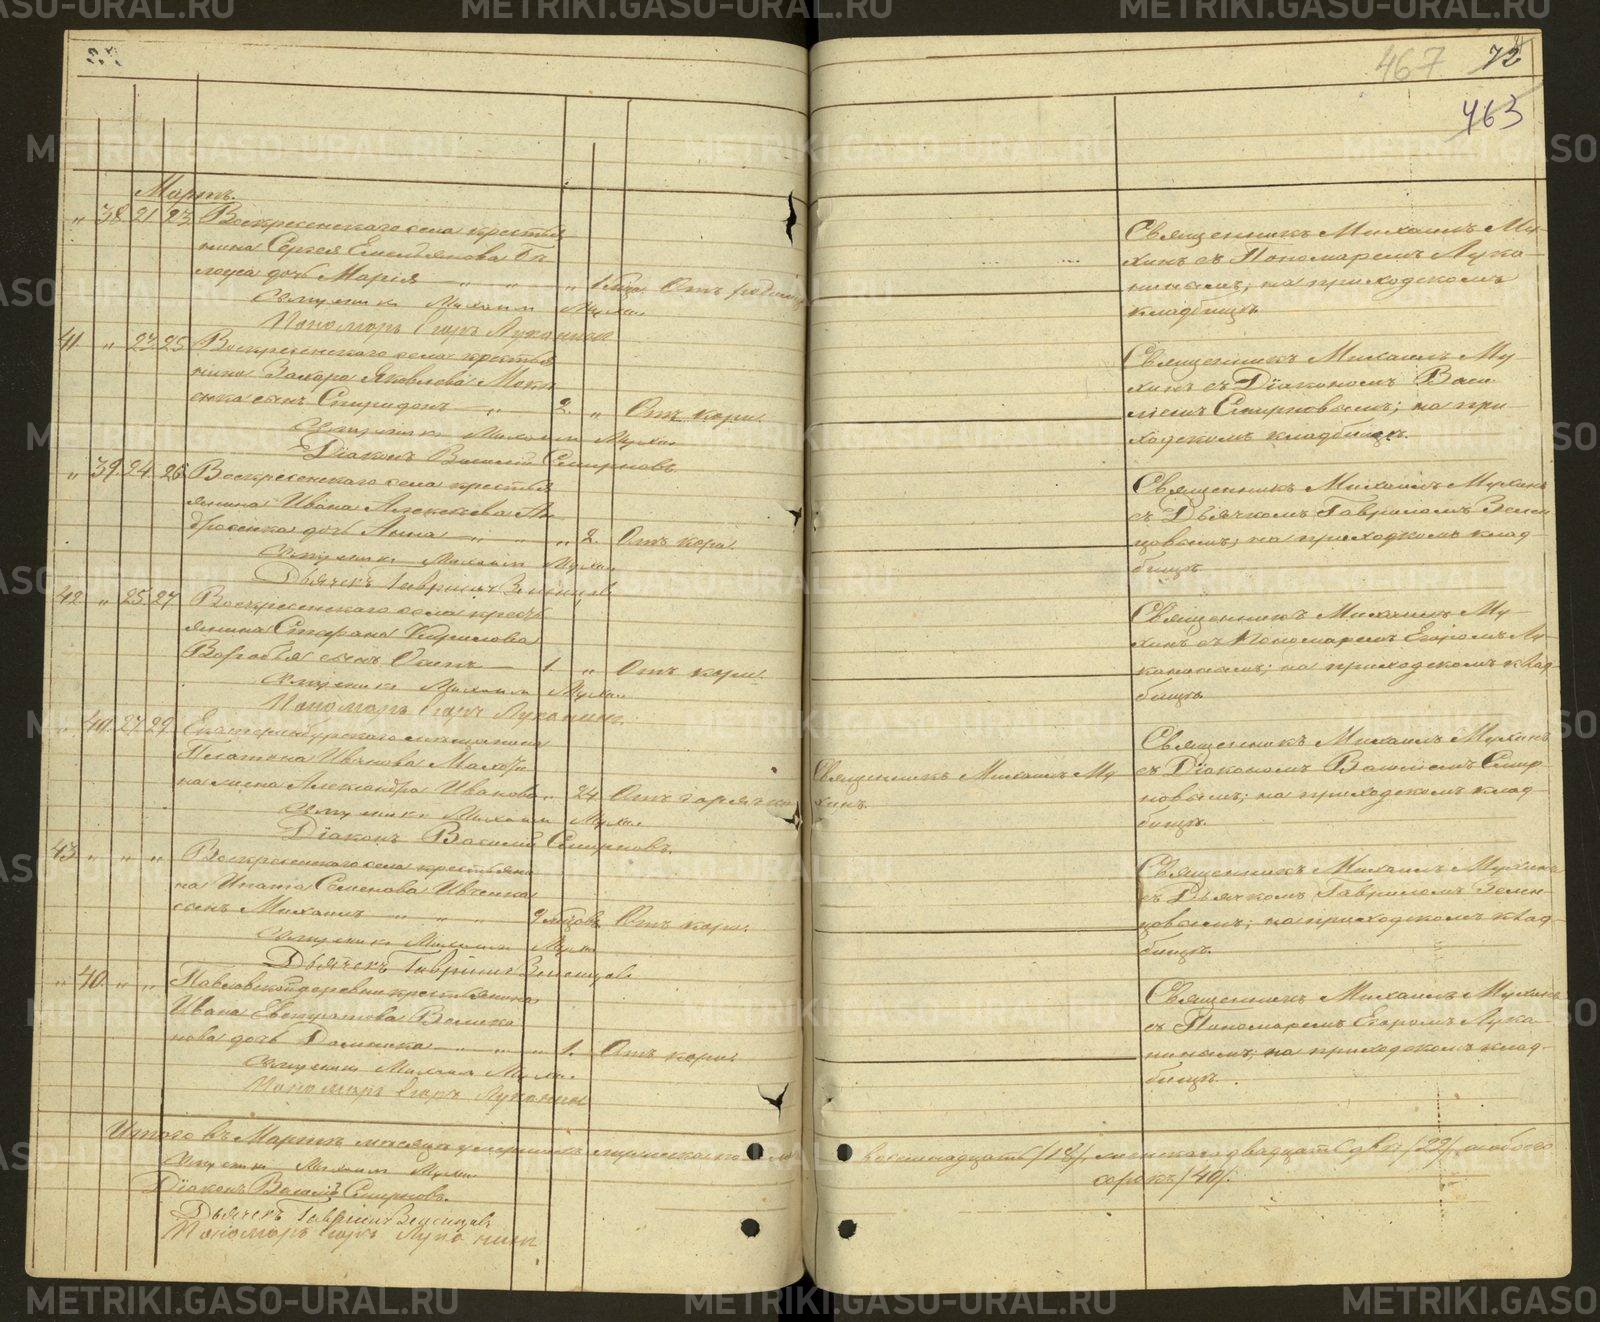 467 72
463
Мартъ.
" 38 21 23 Воскресенскаго села крестья
нина Сергея Емельянова Бѣ
лоуса дочь Марія " " " 1 Отъ родимца
Священникъ Михаилъ Мухинъ
Пономарь Егоръ Луканинъ
41 " 23 25 Воскресенскаго села крестья
нина Захара Яковлева
сынъ Спиридонъ " 2. " Отъ кори.
Священникъ Михаилъ Мухинъ
Діаконъ Василій Смирновъ
" 39. 24. 26 Воскресенскаго села кресть
янина Ивана Алексѣева Ан
дросенка дочь Анна " " " 2. Отъ кори.
Священникъ Михаилъ Мухинъ
Дьячекъ Гавріилъ Зеленцовъ
42 " 25 27 Воскресенскаго села кресть
янина Стефана Кирилова
Воробья сынъ Осипъ 1. " Отъ кори.
Священникъ Михаилъ Мухинъ
Пономарь Егоръ Луканинъ
" 27 29 Екатеринбургскаго мѣщанина
Платона Иванова
жена Александра Иванова " 24 Отъ горячки
Священникъ Михаилъ Мухинъ
Діаконъ Василій Смирновъ.
43 " " " Воскресенскаго села крестьяни
на Ипата Семенова Ивченка
сынъ Михаилъ " " " 9 мѣсяцовъ Отъ кори.
Священникъ Михаилъ Мухинъ
Дьячекъ Гавріилъ Зеленцовъ
" 40. " " Павловской деревни крестьянина
Ивана Евстратова Велика
нова дочь Домника " " " 1. Отъ кори.
Священникъ Михаилъ Мухинъ
Пономарь Егоръ Луканинъ
Итого въ Мартѣ мѣсяцѣ умершихъ мужскаго пола
Священникъ Михаилъ Мухинъ
Діаконъ Василій Смирновъ.
Дьячекъ Гавріилъ Зеленцовъ
Пономарь Егоръ Луканинъ
Священникъ Михаилъ Му-
хинъ съ Пономаремъ Лука-
нинымъ; на приходскомъ
кладбищѣ.
Священникъ Михаилъ Му-
хинъ съ Діакономъ Васи-
ліемъ Смирновымъ; на при-
ходскомъ кладбищѣ.
Священникъ Михаилъ Мухинъ
съ Дьячкомъ Гавриломъ Зелен
цовымъ; на приходскомъ клад-
бищѣ.
Священникъ Михаилъ Му-
хинъ съ Пономаремъ Егоромъ Лу-
канинымъ; на приходскомъ клад-
бищѣ.
Священникъ Михаилъ Му-
хинъ.
Священникъ Михаилъ Мухинъ
съ Діакономъ Василіемъ Смир-
новымъ; на приходскомъ клад-
бищѣ.
Священникъ Михаилъ Мухинъ
съ Дьячкомъ Гавриломъ Зелен-
цовымъ; на приходскомъ клад-
бищѣ.
Священникъ Михаилъ Мухинъ
съ Пономаремъ Егоромъ Лука-
нинымъ; на приходскомъ клад-
бищѣ.
восемнадцать /18/, женскаго двадцать два /22/, а обоего
сорокъ /40/.
METRIKI.GASO-URAL.RU